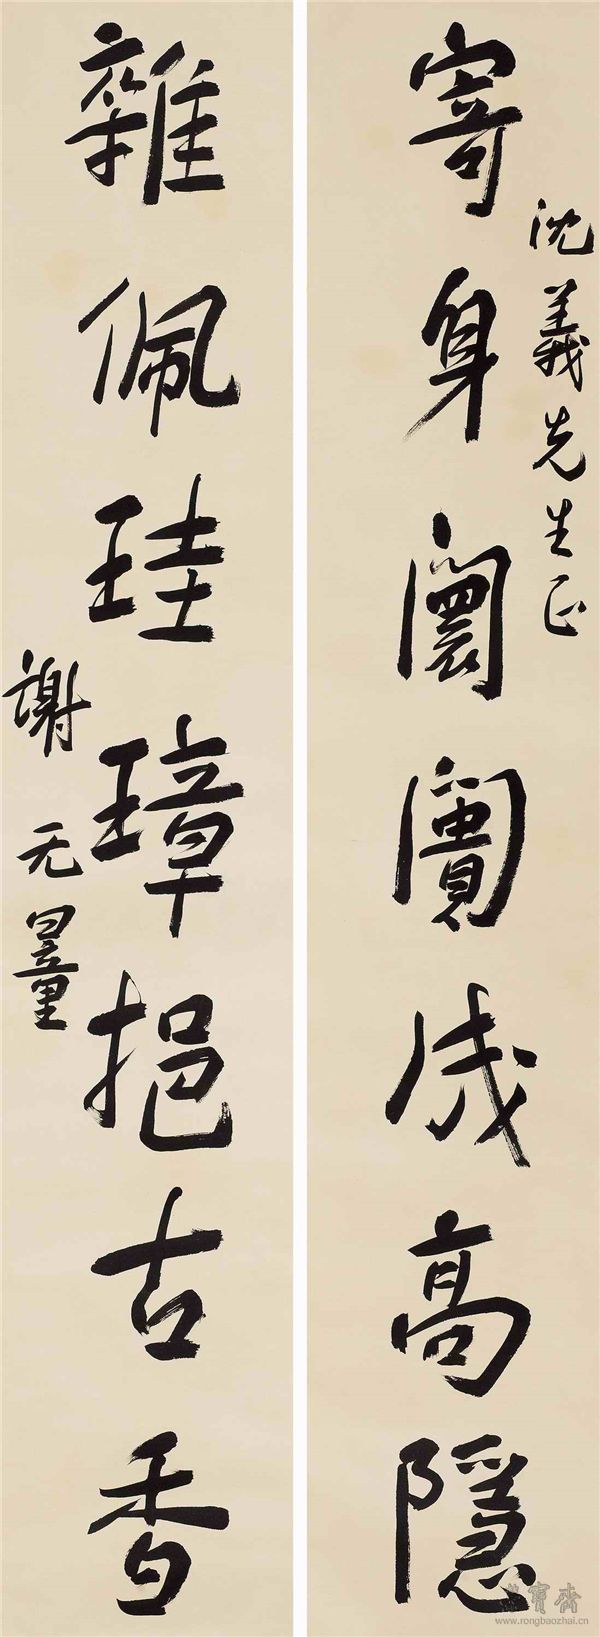 寄身阛阓成高隱
沈義先生正
雜佩珪璋挹古香
謝无量
榮寶齋
www.rongbaozhai.cn